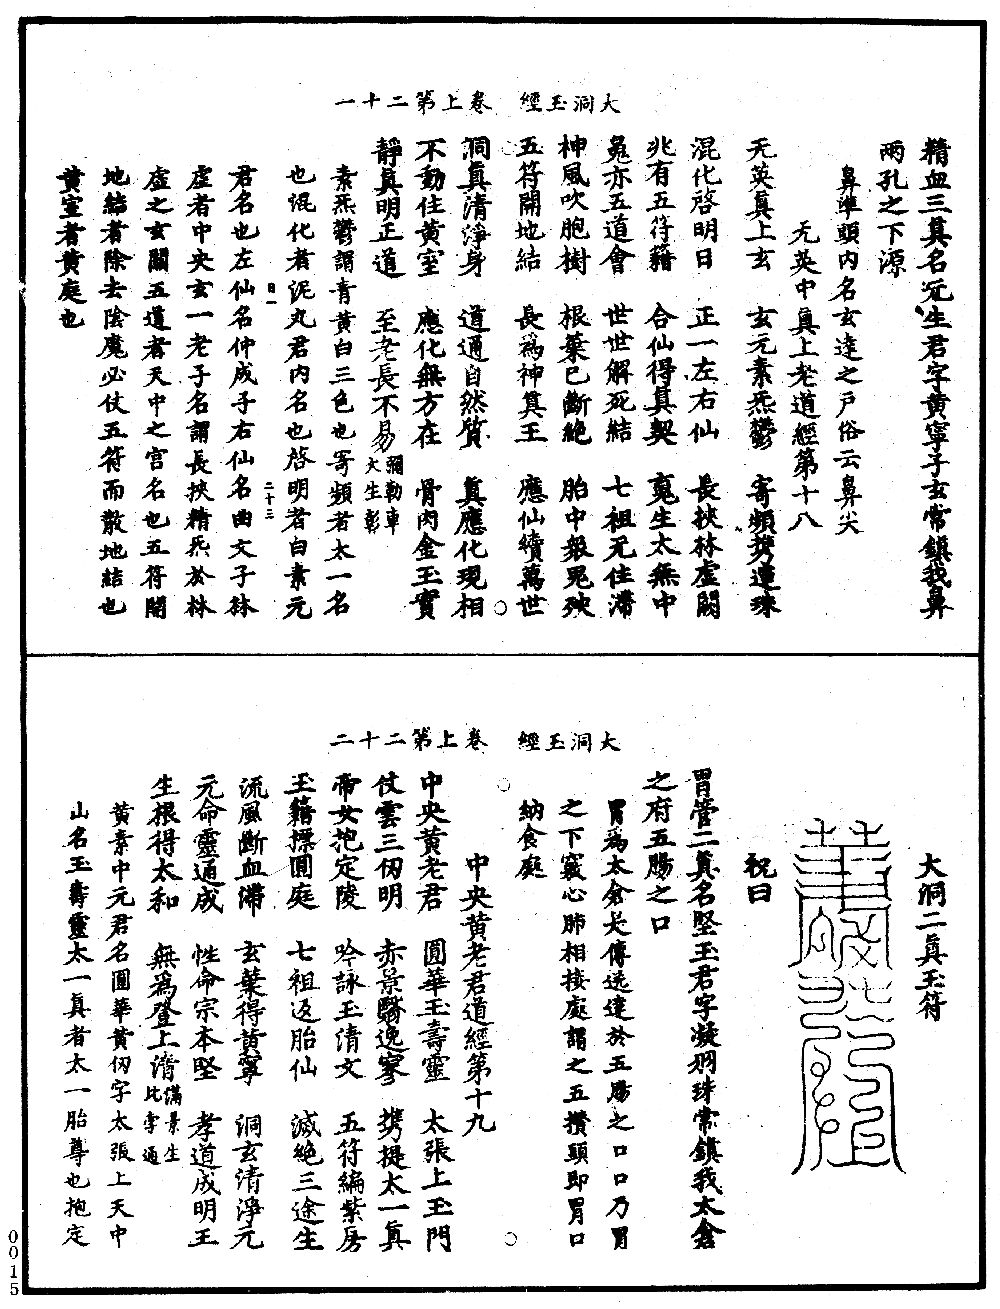 大洞玉經　卷上第二十一
精血三真名元生君字黃寧子玄常鎮我鼻
兩孔之下源
鼻準頭內名玄達之戶俗云鼻尖
无英中真上老道經第十八
无英真上玄　玄元素炁鬱　寄頻攜運珠
混化啓明日　正一左右仙　長挾林虛闕
兆有五符籍　合仙得真契　寬生太無中
冤亦五道會　世世解死結　七祖无住滯
神風吹胞樹　根葉已斷絕　胎中報冤殃
五符開地結　長為神真王　應仙續萬世
洞真清淨身　道通自然質　真應化現相
不動住黃室　應化無方在　骨肉金玉實
靜真明正道　至老長不易　彌勒車大生彰
素炁鬱謂青黃白三色也寄頻者太一名
也混化者泥丸君內名也啓明者白素元
君名也左仙名仲成子右仙名曲文子林
虛者中央玄一老子名謂長挾精炁於林
虛之玄關五道者天中之宫名也五符開
地結者除去陰魔必仗五符而散地結也
黃室者黃庭也
二十三
大洞玉經　卷上第二十二
大洞二真玉符
祝曰
胃管二真名堅玉君字凝羽珠常鎮我太倉
之府五腸之口
胃為太倉长傳送達於五腸之口口乃胃
之下竅心肺相接處謂之五攢頭即胃口
納食處
中央黃老君道經第十九
中央黃老君　圓華玉壽靈　太張上玉門
仗雲三仞明　赤景翳逸寥　攜提太一真
帝女抱定陵　吟詠玉清文　五符編紫房
玉籍標圓庭　七祖返胎仙　滅絕三途生
流風斷血滯　玄葉得黃寧　洞玄清淨元
元命靈通成　性命宗本堅　孝道成明王
生根得太和　無為登上清　滿景生比字通
黃素中元君名圓華黃仞字太張上天中
山名玉壽靈太一真者太一胎尊也抱定
0015